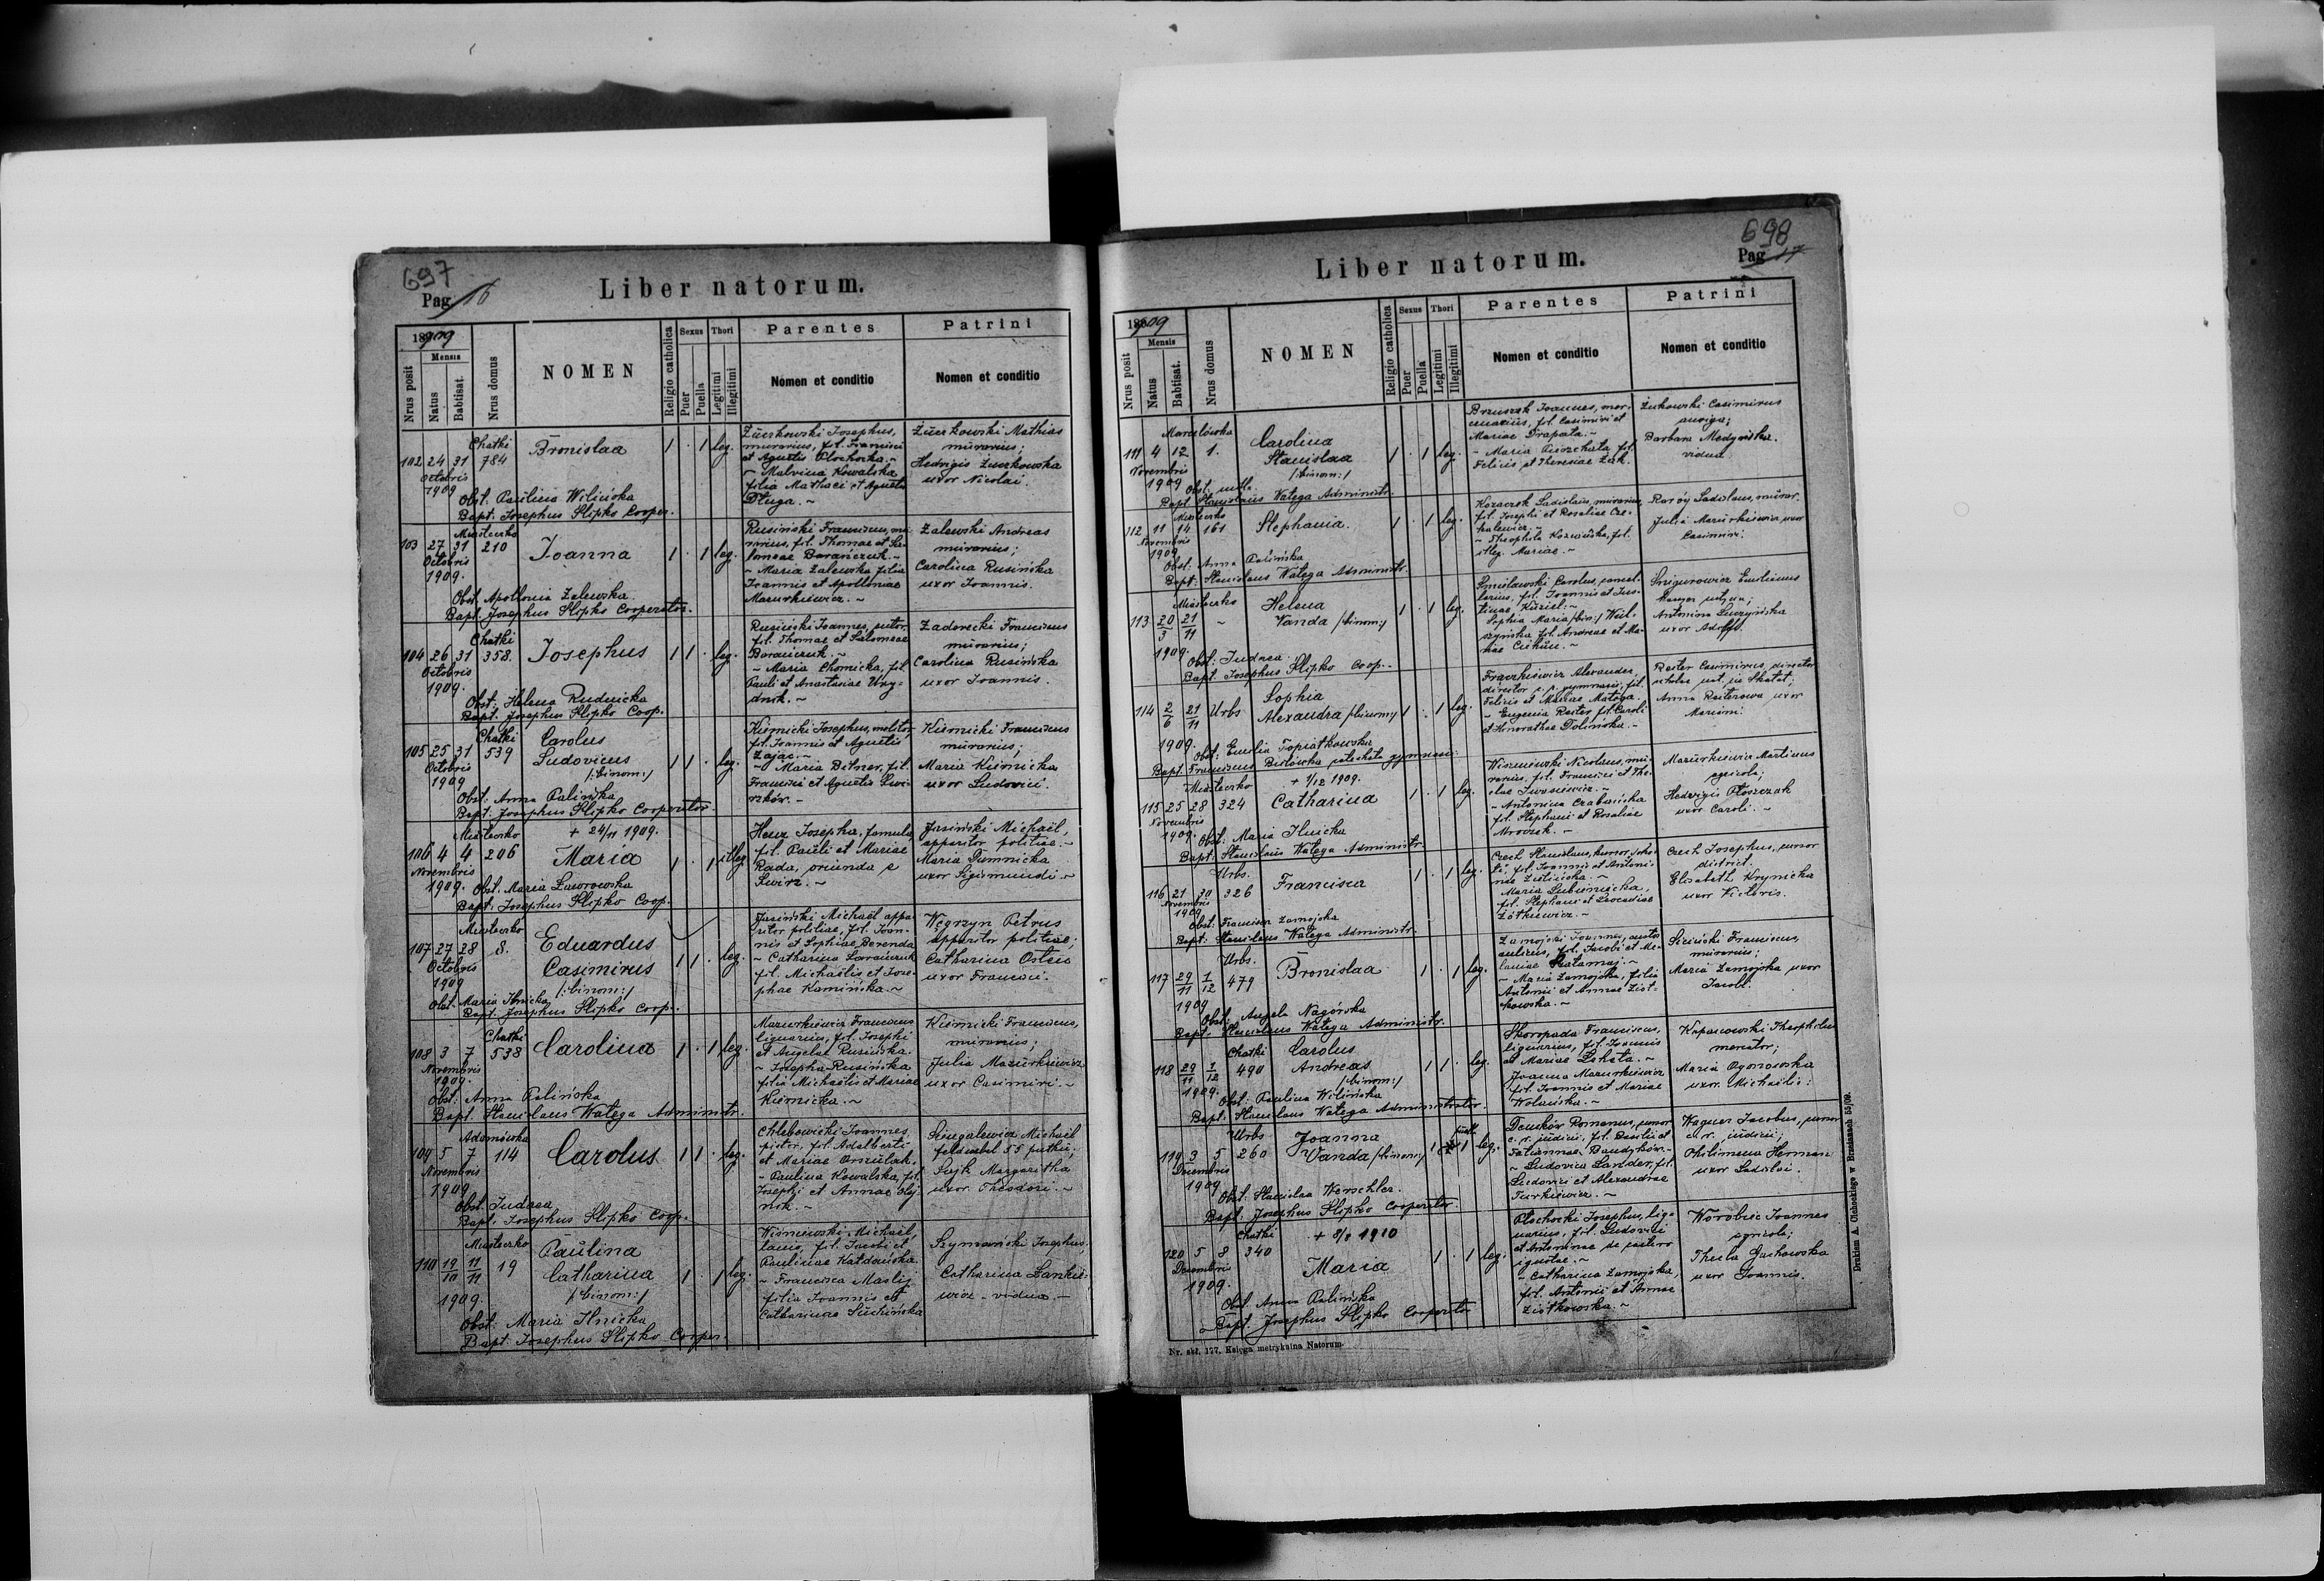 697
Pag 16
Liber natorum.
1909
Nrus posit
Mensis
Natus
Babtisat.
Nrus domus
NOMEN
Religio catholica
Sexus
Puer
Puella
Thori
Legitimi
Illegitimi
Parentes
Nomen et conditio
Patrini
Nomen et conditio
102 24 31 Chatki 784
Octobris
1909
Bronislaa
1 . 1 leg.
murarius, fil. Francisci
~ Malvina Kowalska
filia Mathaei et Agnetis
Długa. ~
murarius;
Hedvigis
uxor Nicolai.
Obst. Paulina Wilińska
Bapt: Josephus Slipko Cooper.
103 27 31 Miasteczko 210
Octobris
1909.
Joanna
1 . 1 leg.
Rusiński Franciscus, mu-
rarius, fil. Thomae et Sa-
lomeae Barańczuk. ~
~ Maria Zalewska filia
Joannis et Apolloniae
Mazurkiewicz. ~
Zalewski Andreas
murarius;
Carolina Rusińska
uxor Joannis.
Obst. Apollonia Zalewska.
Bapt. Josephus Slipko Cooperator.
104 26 31 Chatki 358.
Octobris
1909.
Josephus
1 1 . leg.
Rusiński Joannes, sutor,
fil. Thomae et Salomeae
Barańczuk. ~
~ Maria Chomicka, fil.
Pauli et Anastasiae
Zadorecki Franciscus
murarius;
Carolina Rusińska
uxor Joannis.
Obst: Helena Rudnicka
Bapt. Josephus Slipko Coop.
105 25 31 Chatki 539
Octobris
1909
Carolus
Ludovicus
/:binom:/
1 1 . leg.
Kiernicki Josephus, molitor,
fil. Joannis et Agnetis
Zając. ~
~ Maria Bitner, fil.
Francisci et Agnetis
Kiernicki Franciscus
murarius;
Maria Kiernicka
uxor Ludovici.
Obst: Anna Palińska
Bapt: Josephus Slipko Cooperator.
106 4 4 Miasteczko 206
Novembris
1909.
+ 24/11 1909.
Maria
1 . 1 illeg
Josepha, famula,
fil. Pauli et Mariae
Rada, oriunda e
Swirz. ~
Jasiński Michaël,
apparitor politiae. ~
Maria Dumnicka
uxor Sigismundi ~
Obst. Maria Laworowska
Bapt: Josephus Slipko Coop.
107 27 28 Miasteczko 8.
Octobris
1909
Eduardus
Casimirus
/:binom:/
1 1 . leg.
Jasiński Michaël appa-
ritor politiae, fil. Joan-
nis et Sophiae Berenda
~ Catharina
fil. Michaëlis et Jose-
phae Kamińska. ~
Węgrzyn Petrus
apparitor politiae;
Catharina
uxor Francisci.
Obst. Maria Ilnicka
Bapt. Josephus Slipko Coop.
108 3 7 Chatki 538
Novembris
1909.
Carolina
1 . 1 leg.
Mazurkiewicz Franciscus
lignarius, fil. Josephi
et Angelae Rusińska.
~ Josepha Rusińska
filia Michaëlis et Mariae
Kiernicka. ~
Kiernicki Franciscus,
murarius;
Julia Mazurkiewicz
uxor Casimiri. ~
Obst: Anna Palińska
Bapt: Stanislaus Watęga Administr.
109 5 7 Adamówka 114
Novembris
1909
Carolus
1 1 . leg.
Chlebowicki Joannes
pistor, fil. Adalberti
et Mariae Orszulak.
~ Paulina Kowalska, fil.
Josephi et Annae
Michaël
feldwebel 55
Margaritha
uxor Theodori. ~
Obst. Judaea
Bapt. Josephus Slipko Coop.
110 19/10 11/11 Miasteczko 19
1909.
Paulina
Catharina
/:binom:/
1 . 1 leg.
Wiśniewski Michaël,
fil. Jacobi et
Paulinae
~ Francisca
filia Joannis et
Catharinae
Szymański Josephus;
Catharina
vidua. ~
Obst: Maria Ilnicka
Bapt: Josephus Slipko Cooper.
698
Pag 17
Liber natorum.
1909
Nrus posit
Mensis
Natus
Babtisat.
Nrus domus
NOMEN
Religio catholica
Sexus
Puer
Puella
Thori
Legitimi
Illegitimi
Parentes
Nomen et conditio
Patrini
Nomen et conditio
111 4 12 Marcelówka 1.
Novembris
1909
Carolina
Stanislaa
/:binom:/
1 . 1 leg.
Joannes, mer-
cenarius, fil. Casimiri et
Mariae Drapała. ~
~ Maria fil.
Felicis et Theresiae Żak.
Żukowski Casimirus
auriga;
Barbara Medyńska.
vidua
Obst. nulla.
Bapt. Stanislaus Watęga Administr.
112 11 14 Miasteczko 161
Novembris
1909.
Stephania.
1 . 1 leg.
Kozaczek Ladislaus, murarius,
fil. Josephi et Rosaliae
~ Theophila fil.
illeg. Mariae. ~
Ladislaus, murar.
Julia Mazurkiewicz uxor
Casimiri.
Obst: Anna Palińska
Bapt: Stanislaus Watęga Administr.
113 20/3 21/11 Miasteczko ~
1909.
Helena
Vanda /:binom:/
1 . 1 leg.
Carolus,
fil. Joannis et Jus-
tinae
Sophia Maria /:bin:/
fil. Andreae et Ma-
riae
Emilianus
Antonina
uxor Adolfi.
Obst: Judaea.
Bapt: Josephus Slipko Coop.
114 2/6 21/11 Urbs
1909.
Sophia
Alexandra /:binom:/
1 . 1 leg.
Frączkiewicz Alexander,
director c. r. gymnasii, fil.
Felicis et Mariae Mataga.
~ Eugenia Reiter fil. Caroli
et Honorathae Dolińska. ~
Reiter Casimirus, director
scholae
Anna Reiterowa uxor
Mariani.
Obst. Emilia Topiatkowska
Bapt: Franciscus Bislówka catecheta gymnasii.
115 25 28 Miasteczko 324
Novembris
1909.
+ 1/12 1909.
Catharina
1 . 1 leg.
Wiszniewski Nicolaus, mu-
rarius, fil. Francisci et The-
clae Iwasiewicz. ~
~ Antonina Czabańska
fil. Stephani et Rosaliae
Mroczek. ~
Mazurkiewicz Martinus
agricola;
Hedvigis Płoszczak
uxor Caroli. ~
Obst: Maria Ilnicka
Bapt: Stanislaus Watęga Administr.
116 21 30 Urbs. 326
Novembris
1909
Francisca
1 . 1 leg.
Czech Stanislaus,
fil. Joannis et Antoni-
nae Zielińska. ~
Maria
fil. Stephani et Leocadiae
Żółkiewicz. ~
Czech Josephus, cursor
district.
Elisabeth Krynicka
uxor Victoris.
Obst. Francisca Zamojska
Bapt: Stanislaus Watęga Administr.
117 29/11 1/12 Urbs. 479
1909
Bronislaa
1 . 1 leg.
Zamojski Joannes,
fil. Jacobi et Me-
laniae
~ Maria Zamojska, filia
Antonii et Annae Ziół-
kowska. ~
Siciński Franciscus,
murarius;
Maria Zamojska uxor
Jacobi.
Obst: Angela Nagórska
Bapt: Stanislaus Watęga Administr.
118 29/11 1/12 Chatki 490
1909.
Carolus
Andreas
/:binom:/
1 1 . leg.
Skoropada Franciscus,
lignarius, fil. Joannis
et Mariae
Joanna Mazurkiewicz
fil. Joannis et Mariae
Wolańska. ~
Theophilus
mercator;
Maria Ogonowska
uxor Michaëlis.
Obst. Paulina Wilińska
Bapt: Stanislaus Watęga Administrator.
119 3 5 Urbs 260
Decembris
1909
Joanna
Vanda /:binom:/
1 1 leg.
Romanus, cursor
c. r. judicii, fil. Basilii et
~ Ludovica Sander, fil.
Ludovici et Alexandrae
Turkiewicz. ~
Wagner Jacobus, cursor
c. r. judicii;
Philomena Herman
uxor Ladislai.
Obst. Stanislaa Werschler.
Bapt: Josephus Slipko Cooperator.
120 5 8 Chatki 340
Decembris
1909.
+ 8/2 1910
Maria
1 . 1 leg.
Płochocki Josephus, lig-
narius, fil. Ludovici
et Antoninae de cetero
ignotae. ~
~ Catharina Zamojska,
fil. Antonii et Annae
Ziółkowska. ~
Worobiec Joannes
agricola;
Thecla
uxor Joannis.
Obst. Anna Palińska
Bapt. Josephus Slipko Cooperator
Nr. skł. 177. Księga metrykalna Natorum.
Drukiem A. Cichockiego w Brzeżanach 55/09.